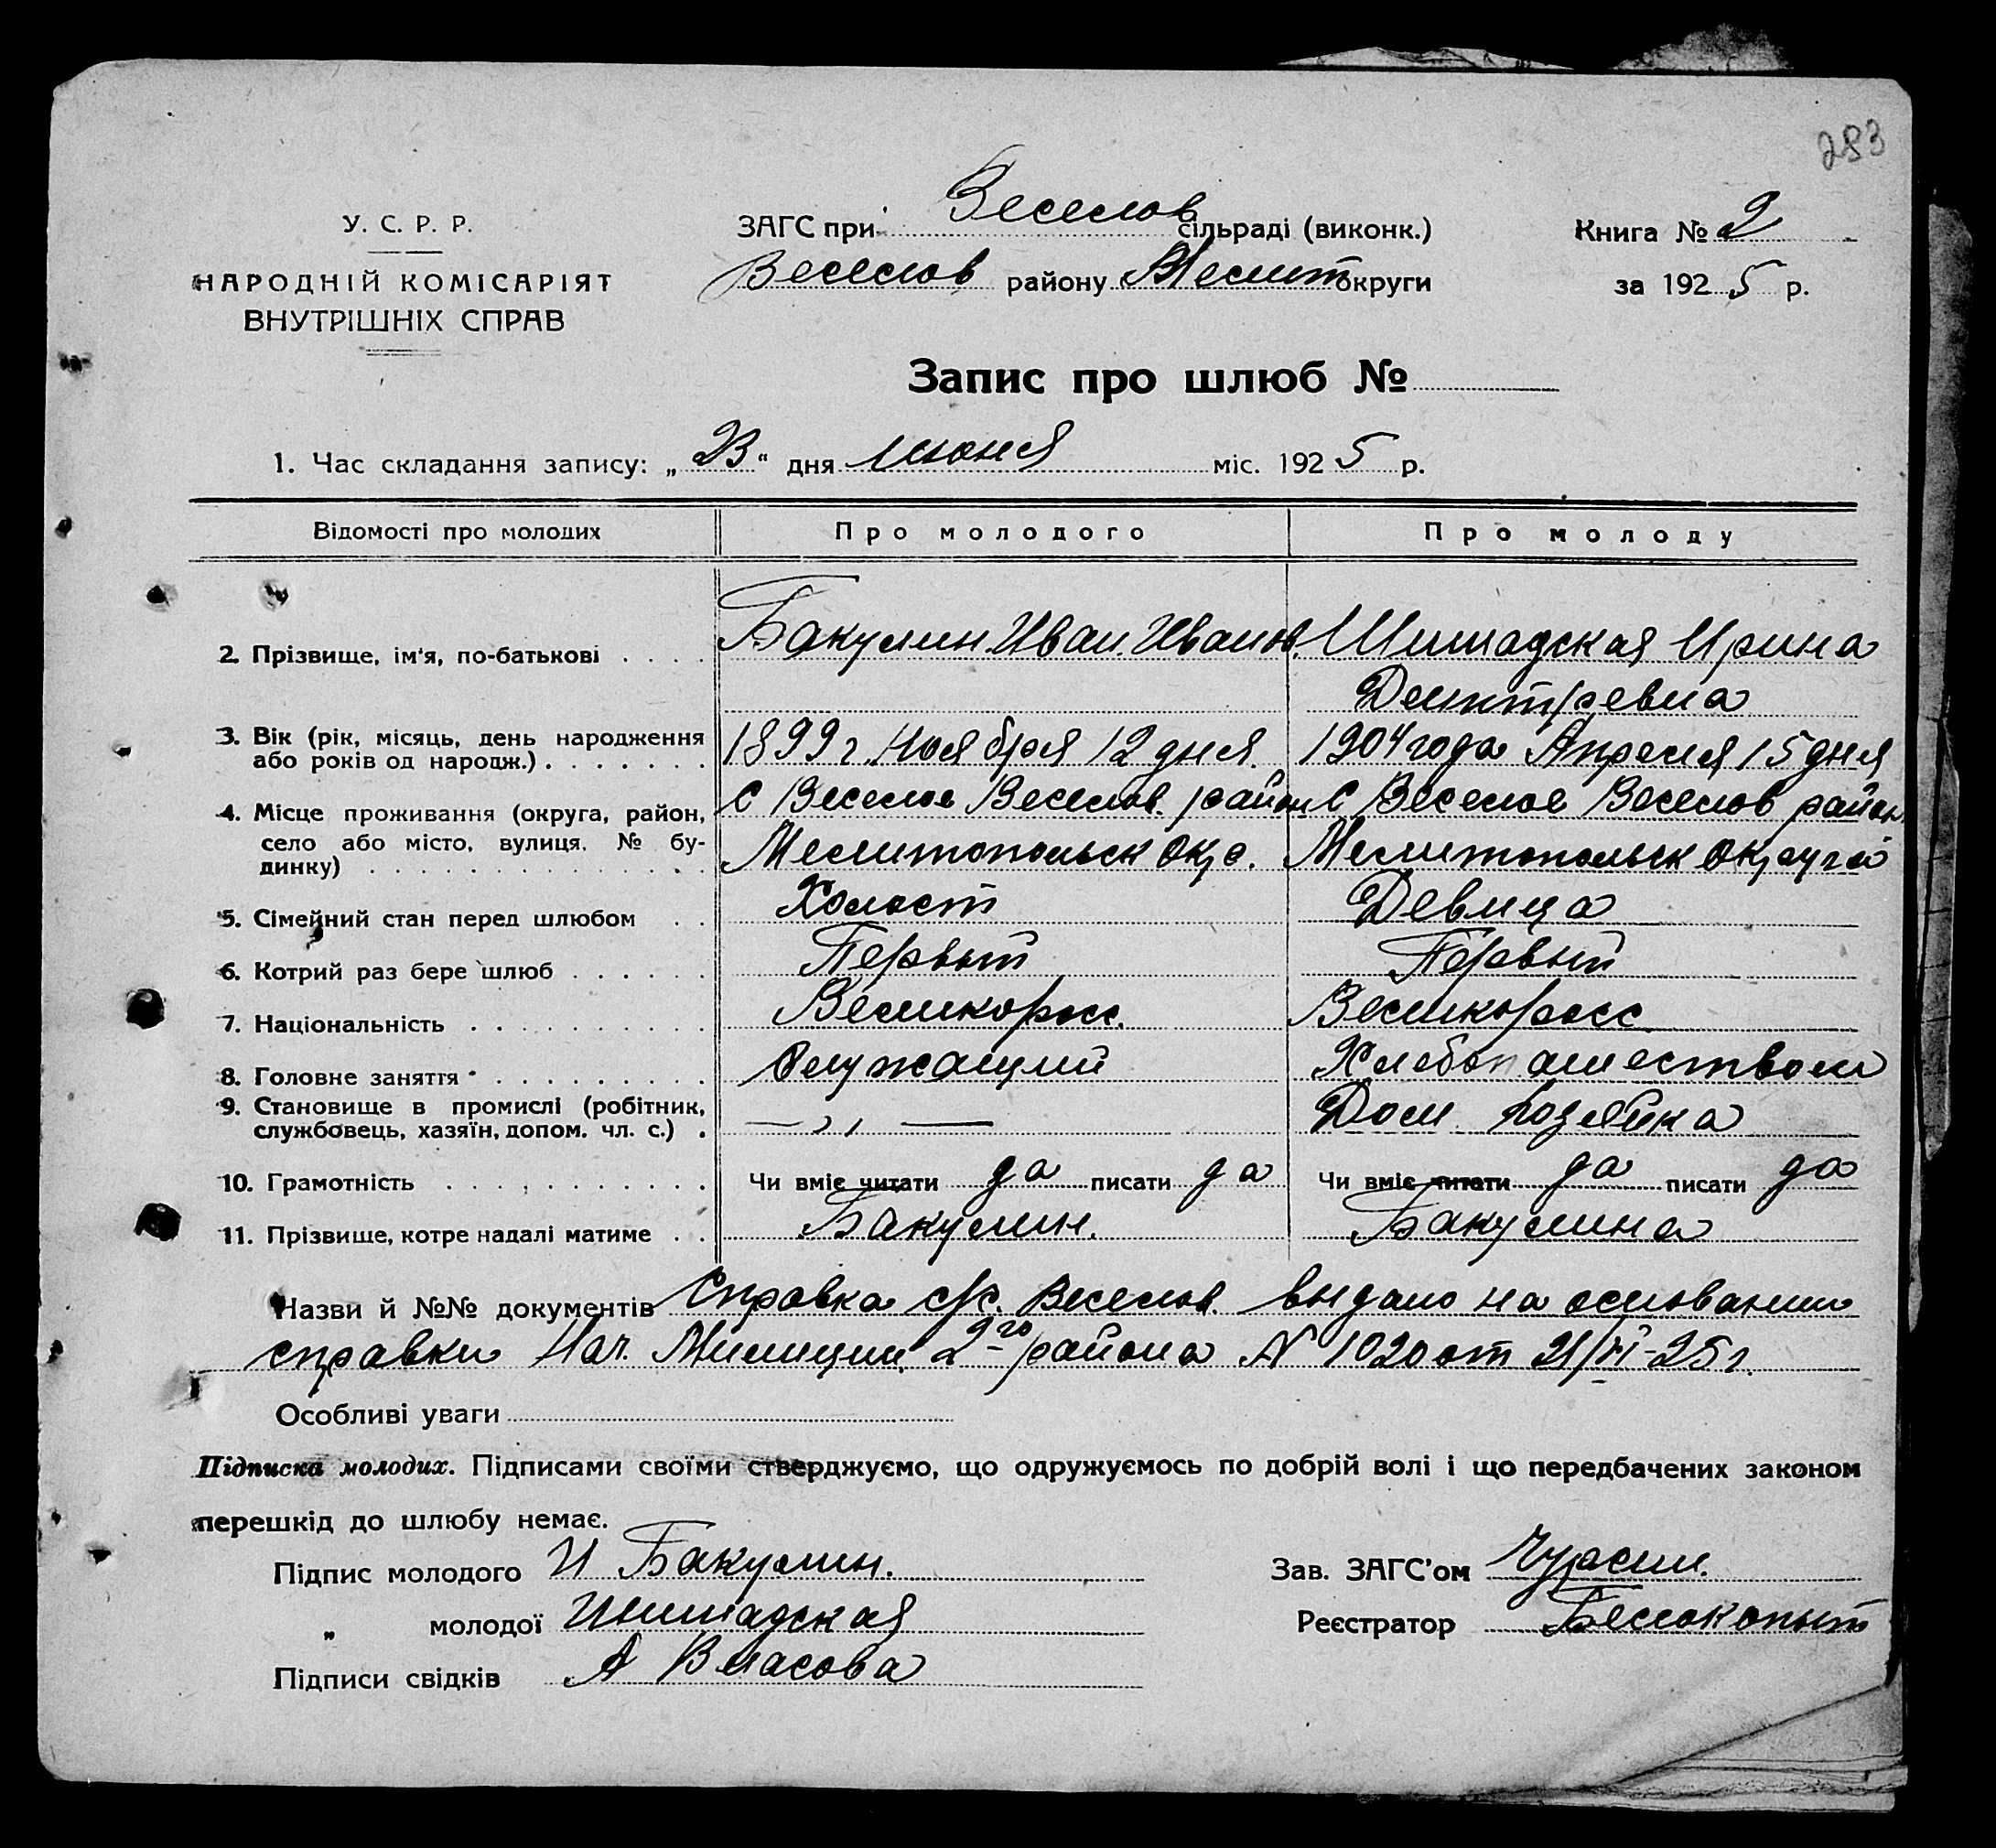 283
У. С. Р. Р.
НАРОДНІЙ КОМІСАРІЯТ
ВНУТРІШНІХ СПРАВ
ЗАГС при Веселов сільраді (виконк.)
Веселов району Мелит округи
Книга № 2
за 1925 р.
Запис про шлюб №
1. Час складання запису: „23“ дня июня міс. 1925 р.
Відомості про молодих Про молодого Про молоду
2. Прізвище, ім'я, по-батькові . . . . Бакулин Иван Иванов. Шишадская Ирина
Дмитревна
3. Вік (рік, місяць, день народження або років од народж.) . . . . . . . 1899 г. Ноября 12 дня. 1904 года Апреля 15 дня
4. Місце проживання (округа, район, С Веселое Веселов. район С Веселое Веселов район
село або місто, вулиця, № будинку) . . . . Мелитопольск Окр. Мелитопольск Округа
5. Сімейний стан перед шлюбом . . Холост Девица
6. Котрий раз бере шлюб . . . . . . Первый Первый
7. Національність . . . . . . . . . . Великоросс. Великоросс
8. Головне заняття . . . . . . . . . Служащий Хлебопашеством
9. Становище в промислі (робітник, службовець, хазяїн, допом. чл. с.) . — ,, — Дом хозяйка
10. Грамотність . . . . . . . . . . . Чи вміє читати да писати да Чи вміє читати да писати да
11. Прізвище, котре надалі матиме . . Бакулин. Бакулина
Назви й №№ документів Справка с/с. Веселов. выдано на основании
справки Нач. Милиции 2-го района № 1020 от 21/VI-25 г.
Особливі уваги
Підписка молодих. Підписами своїми стверджуємо, що одружуємось по добрій волі і що передбачених законом
перешкід до шлюбу немає.
Підпис молодого И Бакулин. Зав. ЗАГС'ом
„ молодої Шишадская Реєстратор Белокопыт
Підписи свідків А Власова